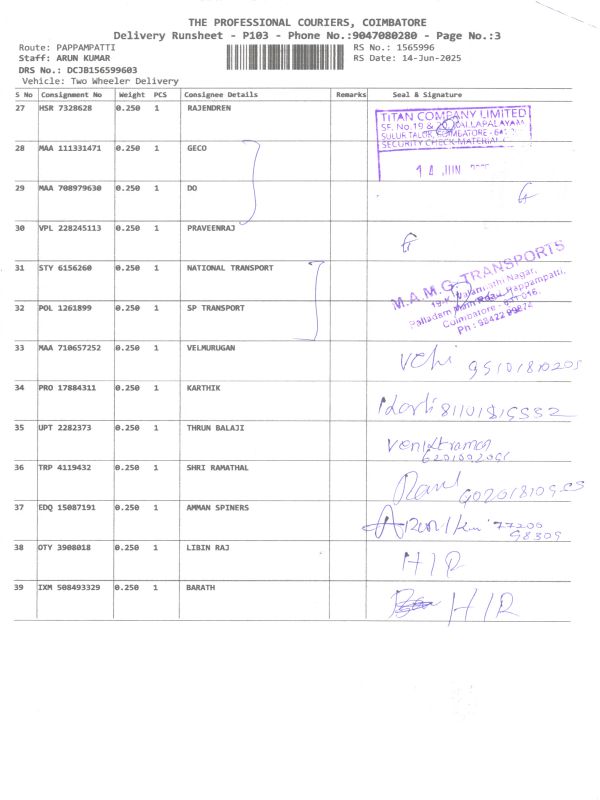 THE PROFESSIONAL COURIERS, COIMBATORE
Delivery Runsheet - P103 - Phone No.:9047080280 - Page No.:3
Route: PAPPAMPATTI
RS No.: 1565996
Staff: ARUN KUMAR
RS Date: 14-Jun-2025
DRS No.: DCJB156599603
Vehicle: Two Wheeler Delivery
S No Consignment No Weight PCS Consignee Details Remarks Seal & Signature
27 HSR 7328628 0.250 1 RAJENDREN
TITAN COMPANY LIMITED
SF. No.19 &
SULUR TALUK, COIMBATORE -
SECURITY CHECK-MATERIAL
28 MAA 111331471 0.250 1 GECO
14 JUN
29 MAA 708979630 0.250 1 DO
30 VPL 228245113 0.250 1 PRAVEENRAJ
31 STY 6156260 0.250 1 NATIONAL TRANSPORT
M.A.M.G TRANSPORTS
Nagar,
Palladam Main Road, Pappampatti,
Coimbatore - 641 016.
Ph : 98422 99872
32 POL 1261899 0.250 1 SP TRANSPORT
33 MAA 710657252 0.250 1 VELMURUGAN
34 PRO 17884311 0.250 1 KARTHIK
35 UPT 2282373 0.250 1 THRUN BALAJI
36 TRP 4119432 0.250 1 SHRI RAMATHAL
37 EDQ 15087191 0.250 1 AMMAN SPINERS
77200
98309
38 OTY 3908018 0.250 1 LIBIN RAJ
H/R
39 IXM 508493329 0.250 1 BARATH
H/R